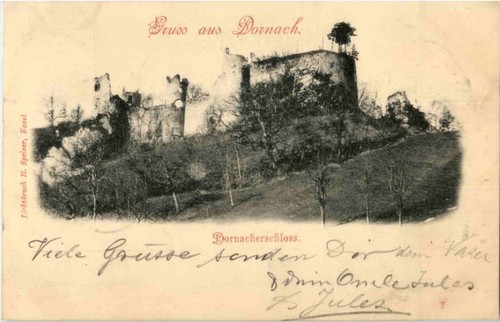 Gruss aus Dornach.
Lichtdruck H. Speiser, Basel
Dornacherschloss.
Viele Grüsse senden Dir dein Vater
& dein Onkel Jules
Jules